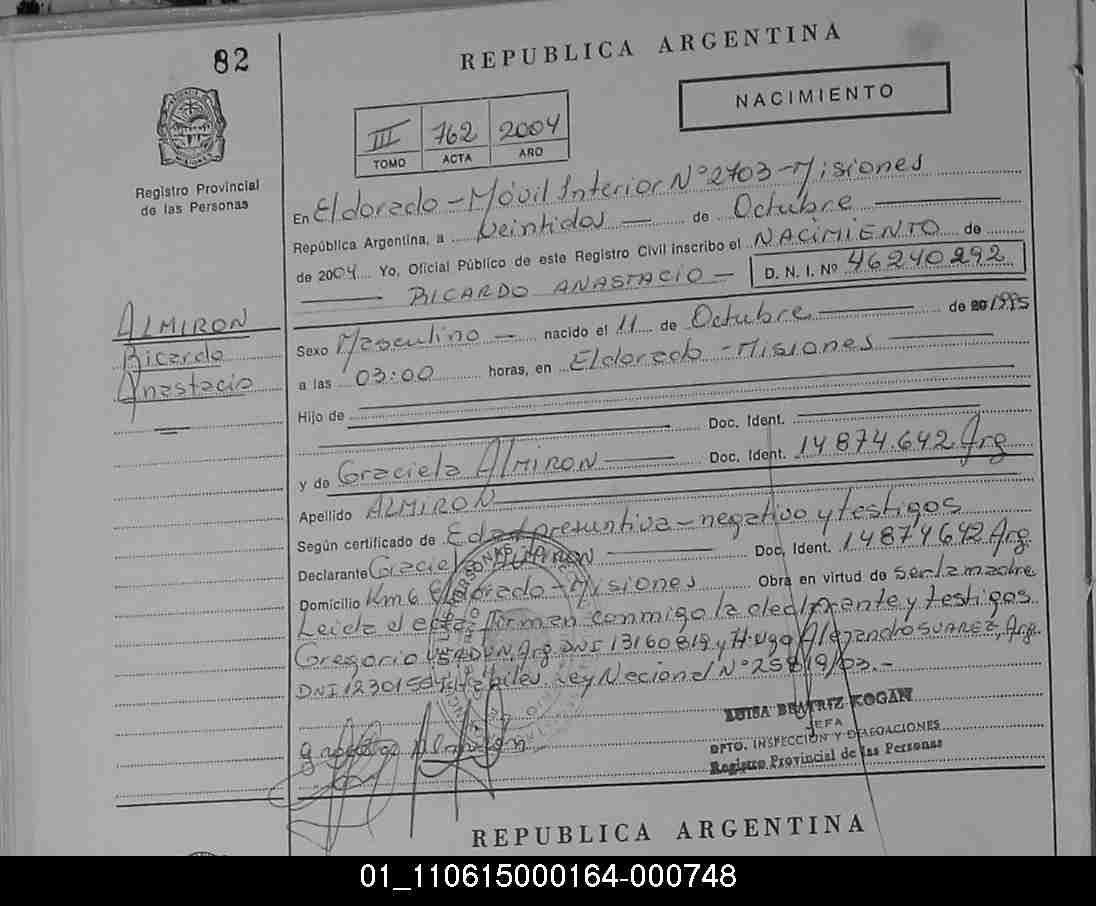 82
REPUBLICA ARGENTINA
NACIMIENTO
III 762 2004
TOMO ACTA AÑO
Registro Provincial
de las Personas
En Eldorado - Móvil Interior Nº 2703 - Misiones
República Argentina, a Veintidos — de Octubre —
de 2004 Yo, Oficial Público de este Registro Civil inscribo el NACIMIENTO de
— RICARDO ANASTACIO — D. N. I. Nº 46240292
ALMIRON
Ricardo
Anastacio
Sexo Masculino — nacido el 11 de Octubre — de 1995
a las 03:00 horas, en Eldorado - Misiones —
Hijo de
Doc. Ident.
y de Graciela ALMIRON — Doc. Ident. 14874.642 Arg
Apellido ALMIRON
Según certificado de Edad presuntiva - negativo y testigos
Declarante Graciela ALMIRON — Doc. Ident. 14874642 Arg.
Domicilio Km 6 Eldorado - Misiones Obra en virtud de ser la madre
Leida el acta firman conmigo la declarante y testigos
Gregorio Arg. DNI 13160819 y Hugo Alejandro SUAREZ, Arg.
DNI hábiles. Ley Nacional Nº 25819/03.-
LUISA BEATRIZ KOGAN
JEFA
DPTO. INSPECCION Y DELEGACIONES
Registro Provincial de las Personas
REPUBLICA ARGENTINA
01_110615000164-000748